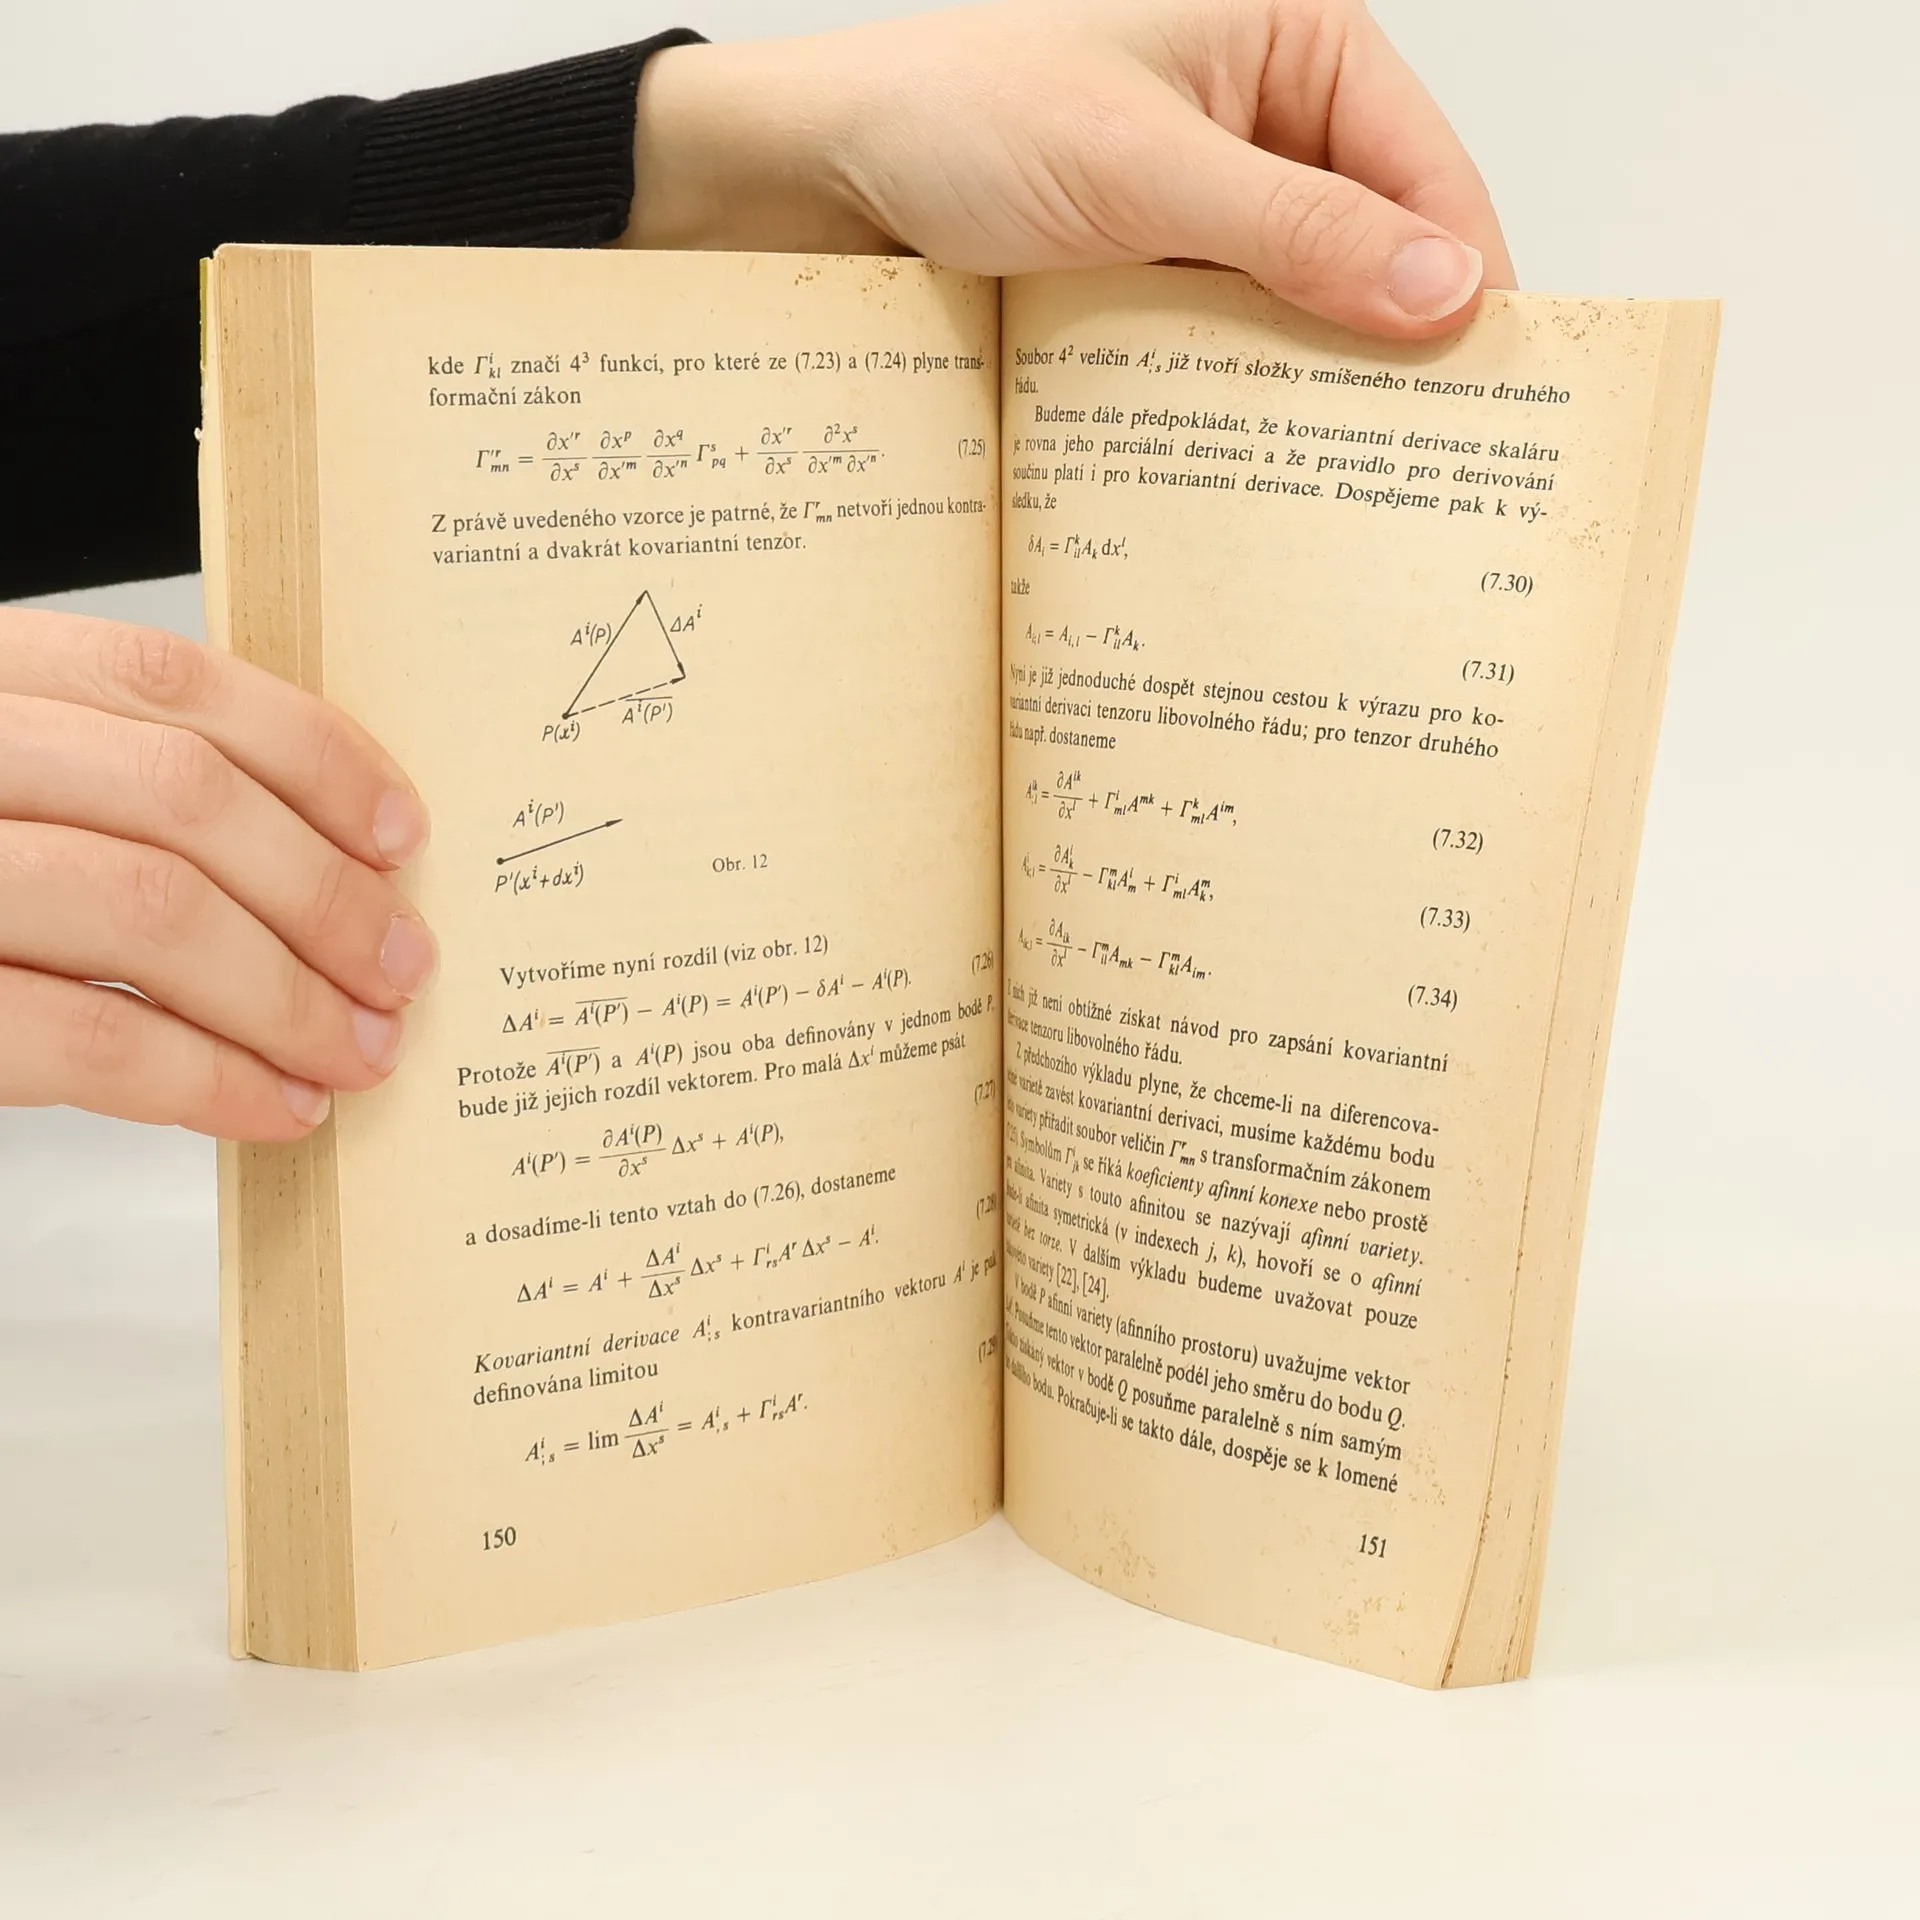 kde Γⁱₖₗ značí 4³ funkcí, pro které ze (7.23) a (7.24) plyne trans-
formační zákon
Γ'ʳₘₙ = ∂x'ʳ/∂xˢ ∂xᵖ/∂x'ᵐ ∂x^q/∂x'ⁿ Γˢ_pq + ∂x'ʳ/∂xˢ ∂²xˢ/∂x'ᵐ ∂x'ⁿ. (7.25)
Z právě uvedeného vzorce je patrné, že Γʳₘₙ netvoří jednou kontra-
variantní a dvakrát kovariantní tenzor.
Aⁱ(P)
ΔAⁱ
P(xⁱ)
A̅ⁱ̅(̅P̅'̅)̅
Aⁱ(P')
P'(xⁱ+dxⁱ)
Obr. 12
Vytvoříme nyní rozdíl (viz obr. 12)
ΔAⁱ = A̅ⁱ̅(̅P̅'̅)̅ − Aⁱ(P) = Aⁱ(P') − δAⁱ − Aⁱ(P). (7.26)
Protože A̅ⁱ̅(̅P̅'̅)̅ a Aⁱ(P) jsou oba definovány v jednom bodě P,
bude již jejich rozdíl vektorem. Pro malá Δxⁱ můžeme psát
Aⁱ(P') = ∂Aⁱ(P)/∂xˢ Δxˢ + Aⁱ(P), (7.27)
a dosadíme-li tento vztah do (7.26), dostaneme
ΔAⁱ = Aⁱ + ΔAⁱ/Δxˢ Δxˢ + Γⁱᵣₛ Aʳ Δxˢ − Aⁱ. (7.28)
Kovariantní derivace Aⁱ;ₛ kontravariantního vektoru Aⁱ je pak
definována limitou
Aⁱ;ₛ = lim ΔAⁱ/Δxˢ = Aⁱ,ₛ + Γⁱᵣₛ Aʳ. (7.29)
150
Soubor 4² veličin Aⁱ;ₛ již tvoří složky smíšeného tenzoru druhého
řádu.
Budeme dále předpokládat, že kovariantní derivace skaláru
je rovna jeho parciální derivaci a že pravidlo pro derivování
součinu platí i pro kovariantní derivace. Dospějeme pak k vý-
sledku, že
δAᵢ = Γᵏᵢₗ Aₖ dxˡ, (7.30)
takže
Aᵢ;ₗ = Aᵢ,ₗ − Γᵏᵢₗ Aₖ. (7.31)
Nyní je již jednoduché dospět stejnou cestou k výrazu pro ko-
variantní derivaci tenzoru libovolného řádu; pro tenzor druhého
řádu např. dostaneme
Aⁱᵏ;ₗ = ∂Aⁱᵏ/∂xˡ + Γⁱₘₗ Aᵐᵏ + Γᵏₘₗ Aⁱᵐ, (7.32)
Aⁱₖ;ₗ = ∂Aⁱₖ/∂xˡ − Γᵐₖₗ Aⁱₘ + Γⁱₘₗ Aᵐₖ, (7.33)
Aᵢₖ;ₗ = ∂Aᵢₖ/∂xˡ − Γᵐᵢₗ Aₘₖ − Γᵐₖₗ Aᵢₘ. (7.34)
Z nich již není obtížné získat návod pro zapsání kovariantní
derivace tenzoru libovolného řádu.
Z předchozího výkladu plyne, že chceme-li na diferencova-
varietě zavést kovariantní derivaci, musíme každému bodu
variety přiřadit soubor veličin Γʳₘₙ s transformačním zákonem
Symbolům Γⁱⱼₖ se říká koeficienty afinní konexe nebo prostě
afinita. Variety s touto afinitou se nazývají afinní variety.
afinita symetrická (v indexech j, k), hovoří se o afinní
varietě bez torze. V dalším výkladu budeme uvažovat pouze
variety [22], [24].
V bodě P afinní variety (afinního prostoru) uvažujme vektor
Posuňme tento vektor paralelně podél jeho směru do bodu Q.
získaný vektor v bodě Q posuňme paralelně s ním samým
dalšího bodu. Pokračuje-li se takto dále, dospěje se k lomené
151